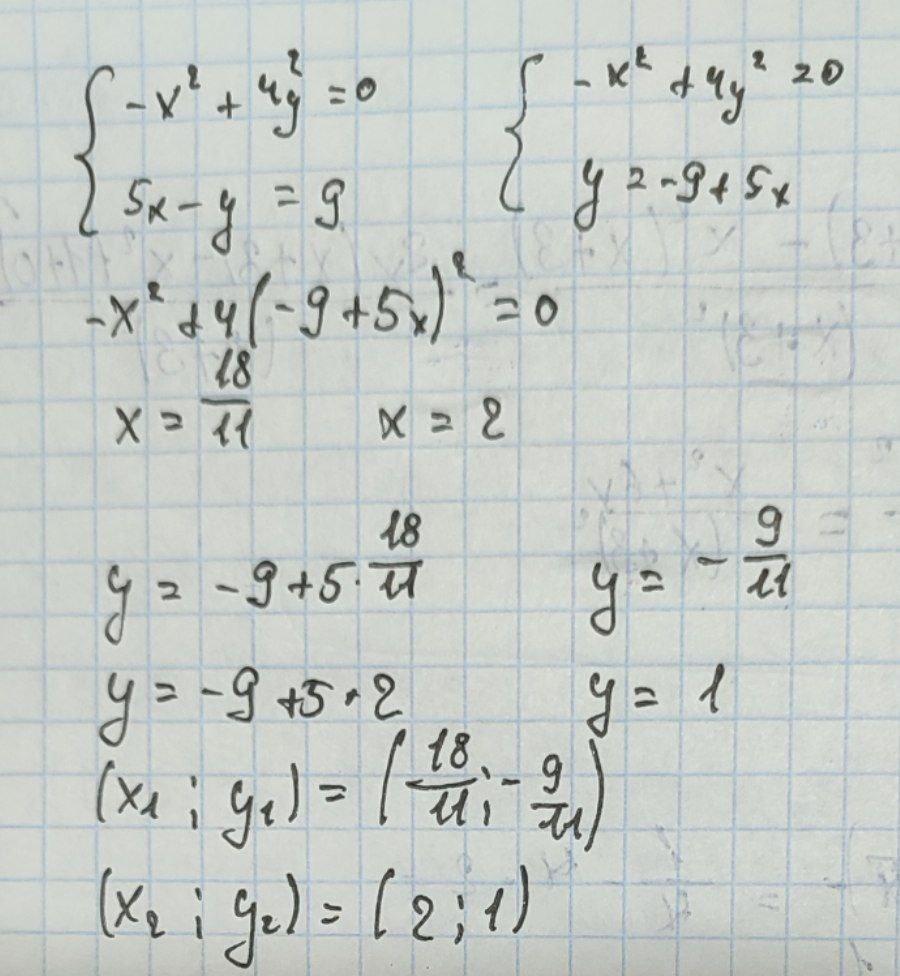 { -x² + 4y² = 0    { -x² + 4y² = 0
5x - y = 9    y = -9 + 5x
-x² + 4(-9 + 5x)² = 0
x = 18/11    x = 2
y = -9 + 5 · 18/11    y = - 9/11
y = -9 + 5 · 2    y = 1
(x₁ ; y₁) = (18/11 ; - 9/11)
(x₂ ; y₂) = (2 ; 1)